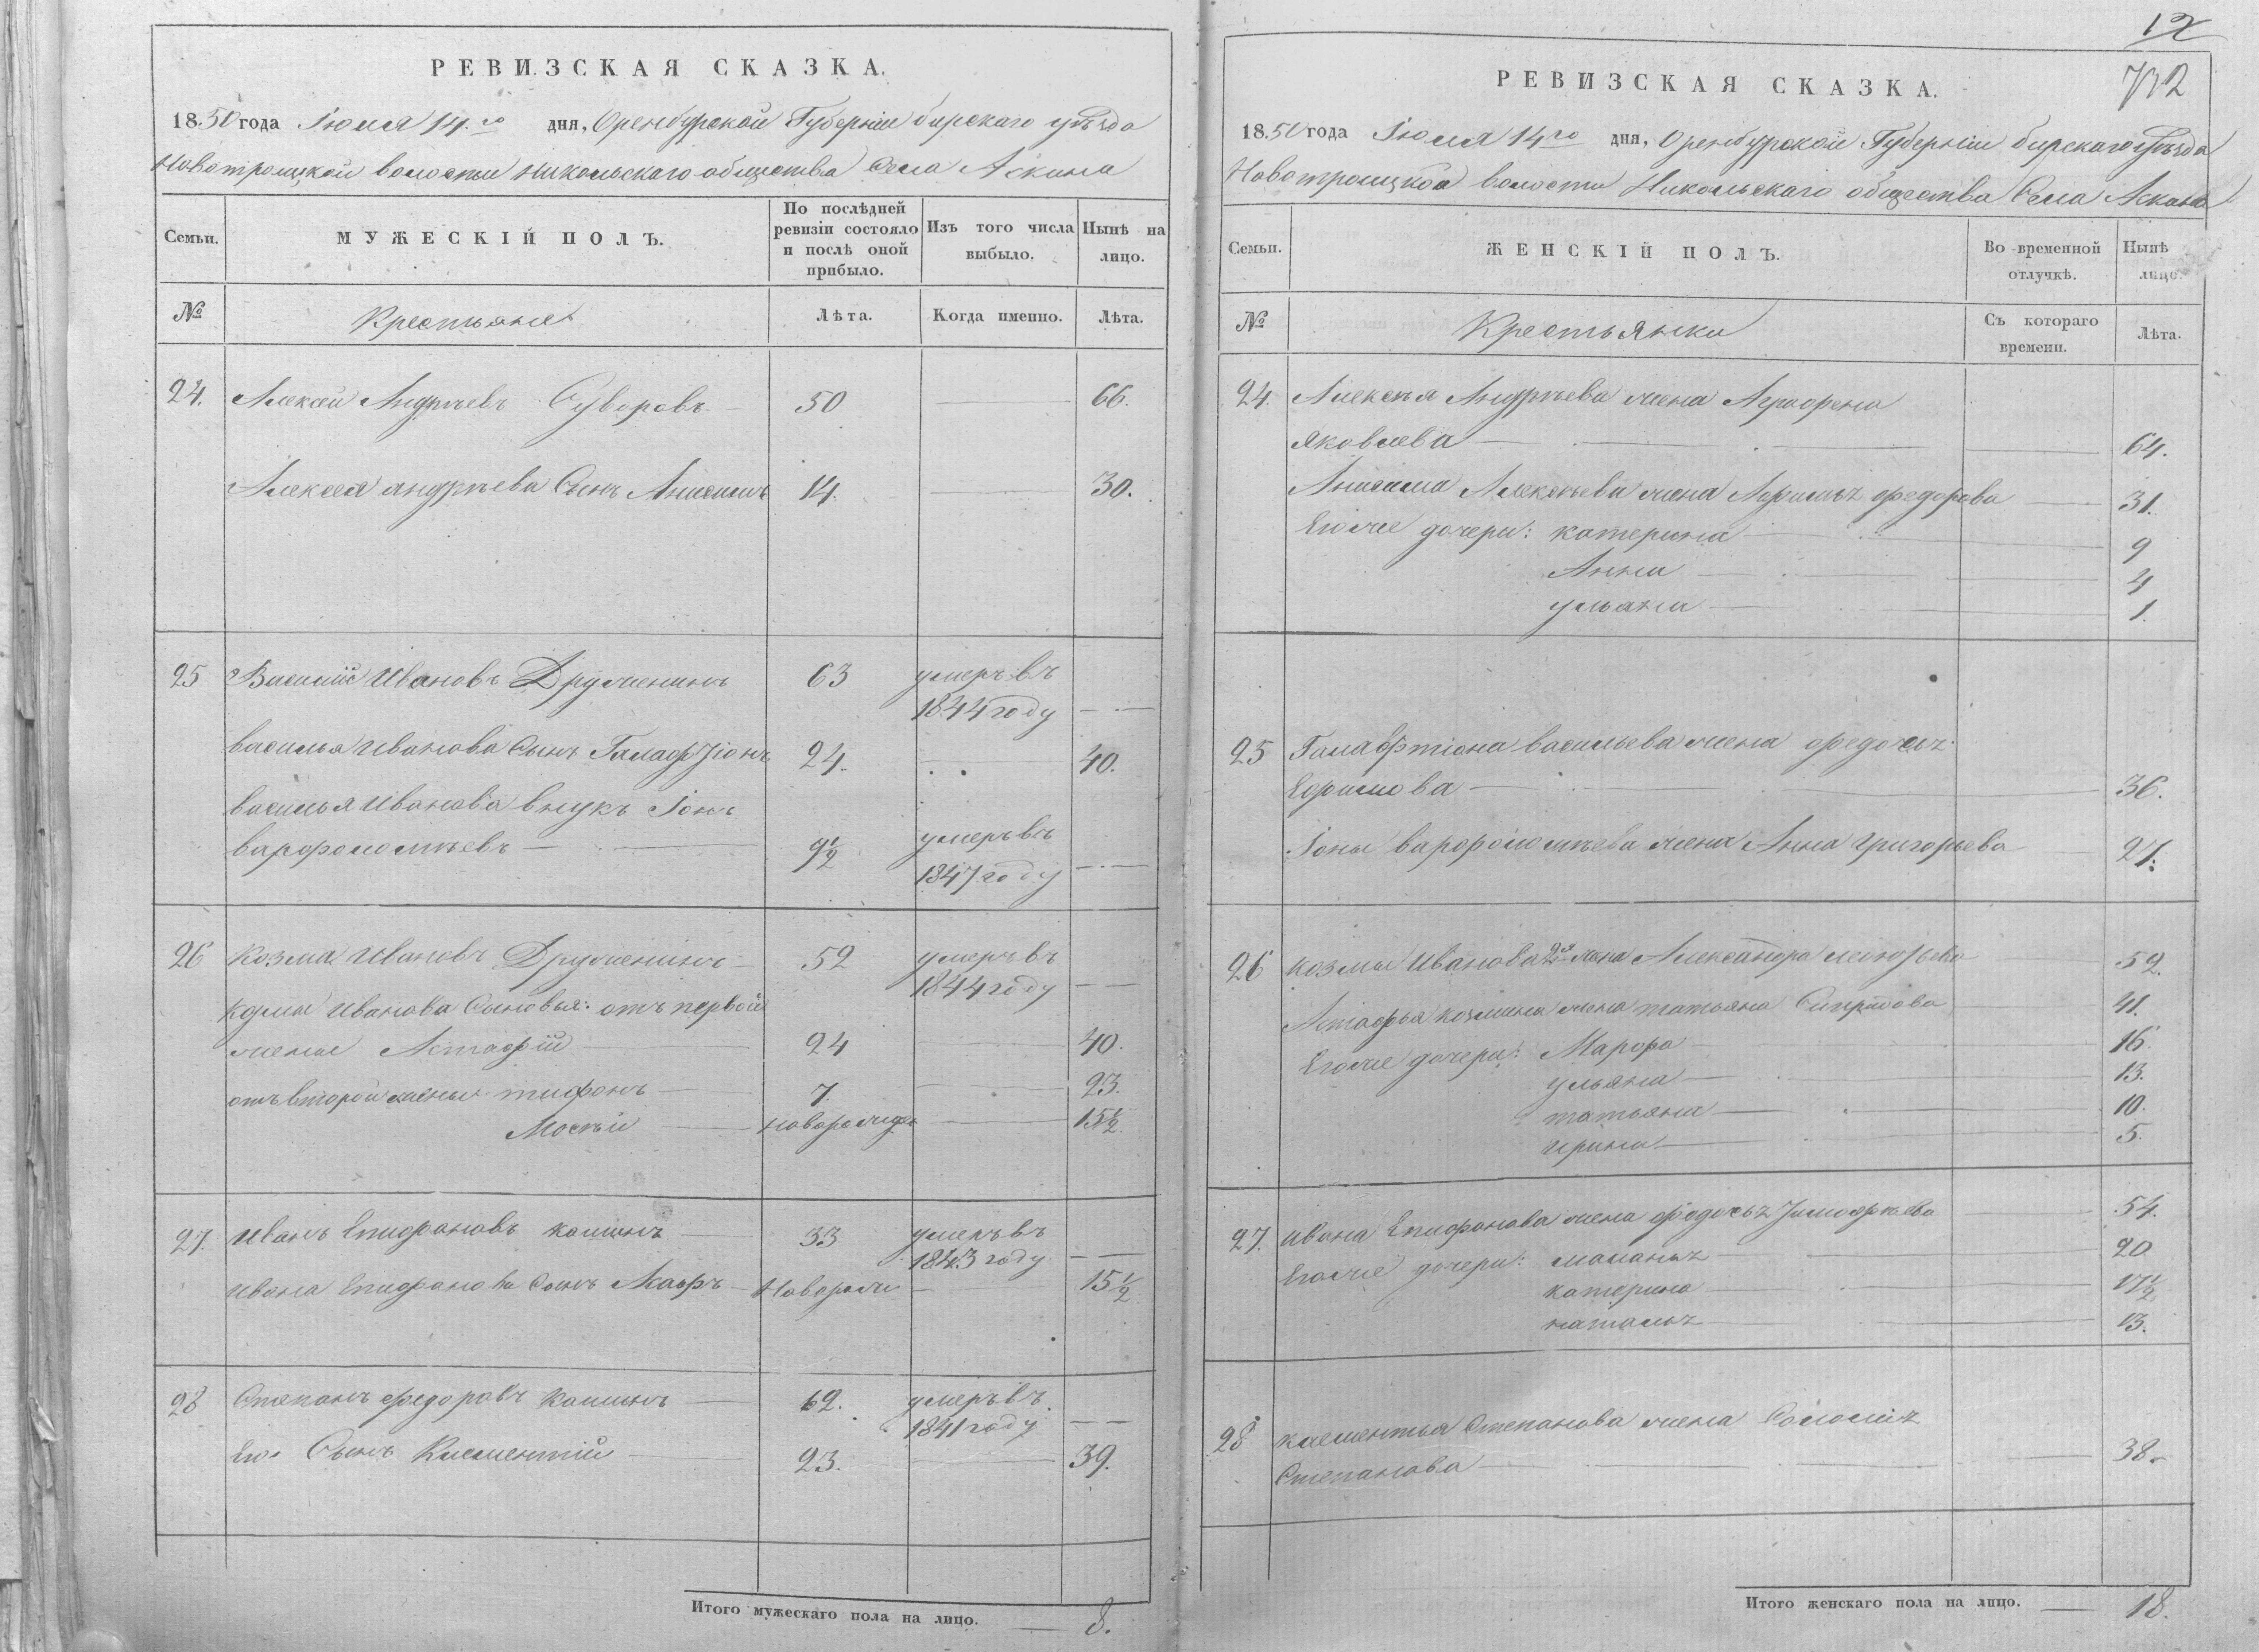 РЕВИЗСКАЯ СКАЗКА.
1850 года Іюля 14го дня, Оренбургской Губерніи бирскаго уѣзда
Новотроицкой волости никольскаго общества Села Аскина
Семьи.
МУЖЕСКІЙ ПОЛЪ.
По послѣдней ревизіи состояло и послѣ оной прибыло.
Изъ того числа выбыло.
Нынѣ на лицо.
№
Крестьяне
Лѣта.
Когда именно.
Лѣта.
24. Алексей Андрѣевъ Суворовъ 50 66.
Алексея андрѣева Сынъ Анисимъ 14. 30.
25 Василий Ивановъ Друженинъ 63 умеръ въ
1844 году
василья Иванова Сынъ 24. 40.
василья Иванова внукъ Іонъ
варфоломѣевъ 9½ умеръ въ
1847 году
26 Козма Ивановъ Друженинъ 52 умеръ въ
1844 году
Иванова Сыновья: отъ первой
жены Астафій 24 40.
отъ второй жены тифонъ 7. 23.
Мосѣй 15½
27. Иванъ Епифановъ 33 умеръ въ
1843 году
Ивана Епифанова Сынъ 15½
28 Степанъ Федоровъ 62. умеръ въ
1841 году
Его Сынъ Клементій 23. 39.
Итого мужескаго пола на лицо. 8.
12
732
РЕВИЗСКАЯ СКАЗКА.
1850 года Іюля 14го дня, Оренбургской Губерніи бирскаго уѣзда
Новотроицкой волости Никольскаго общества Села Аскина
Семьи.
ЖЕНСКІЙ ПОЛЪ.
Во временной отлучкѣ.
Нынѣ лицо.
№
Крестьянки
Съ котораго времени.
Лѣта.
24. Алексѣя Андрѣева жена Аграфена
Яковлева 64.
Анисима Алексѣева жена федорова 31.
Егоже дочери: катерина 9
Анна 4
ульяна 1.
25 васильева жена федосья
Ефимова 36.
Іоны варфоломѣева жена Анна Григорьева 27.
26 козмы Иванова 2я жена Александра 59.
Астафья козмина жена татьяна 41.
Егоже дочери: Марфа 16.
ульяна 13.
татьяна 10.
ирина 5.
27. ивана Епифанова жена федосья 54.
Егоже дочери: маланья 20
катерина 17½
наталья 13.
28 клементья Степанова жена
Степанова 38.
Итого женскаго пола на лицо. 18.